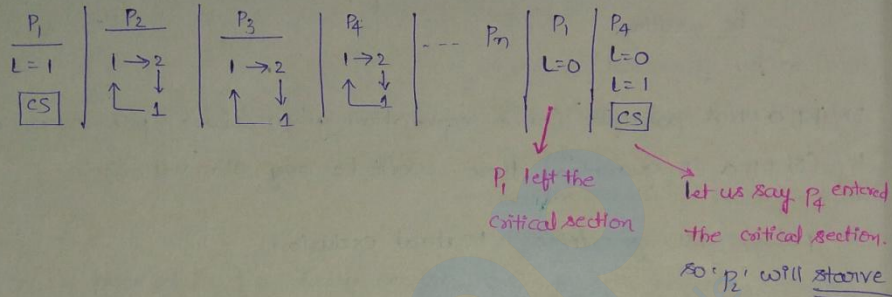 P1
L=1
CS
P2
1→2
1
P3
1→2
1
P4
1→2
1
---- Pn
P1
L=0
P4
L=0
L=1
CS
P1 left the
critical section
Let us say P4 entered
the critical section.
so 'P2' will starve